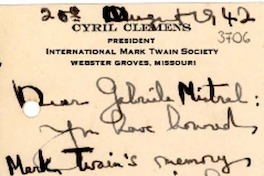 20th August 1942
CYRIL CLEMENS
3706
PRESIDENT
INTERNATIONAL MARK TWAIN SOCIETY
WEBSTER GROVES, MISSOURI
Dear Gabriele Mistral:
You have honored
Mark Twain's memory